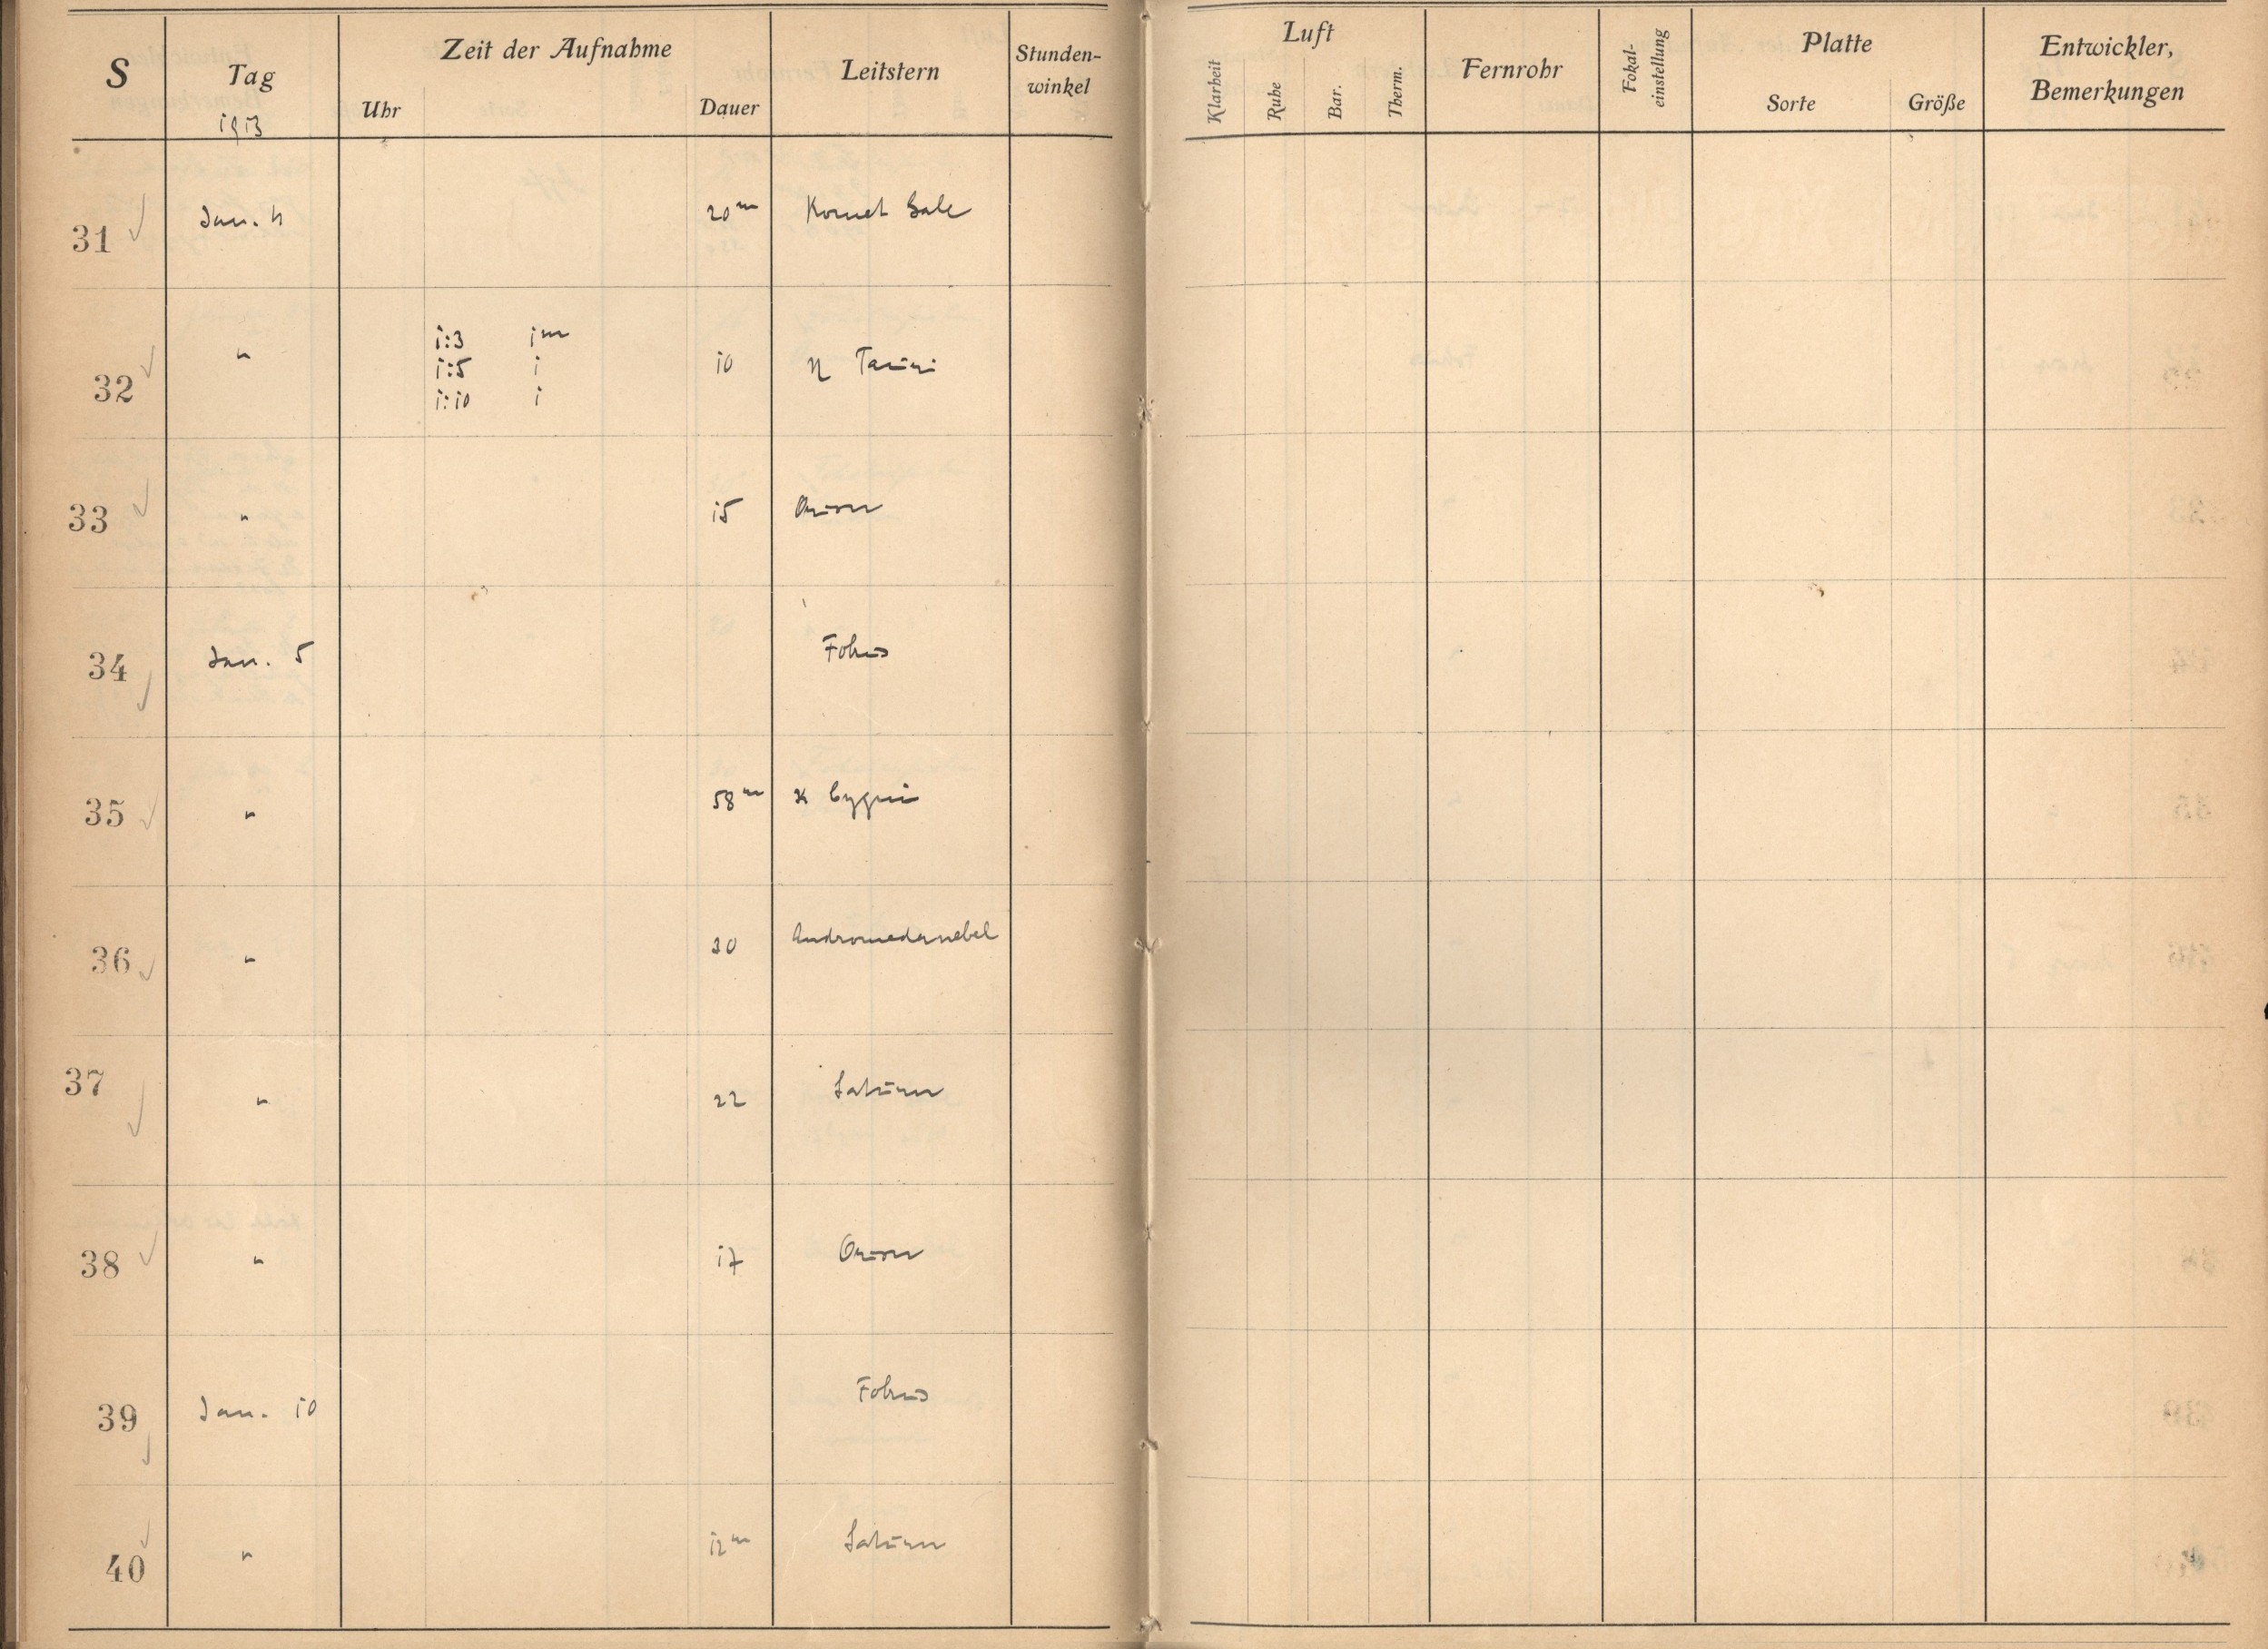 S Tag Zeit der Aufnahme Leitstern Stunden-
winkel
Uhr Dauer
1913
Luft Fernrohr Fokal-
einstellung Platte Entwickler,
Bemerkungen
Klarheit Ruhe Bar. Therm. Sorte Größe
31 Jan. 4 20m Komet Gale
32 " 1:3 1m
1:5 1 10 η Tauri
1:10 1
33 " 15 Orion
34 Jan. 5 Fokus
35 " 58m κ Cygni
36 " 30 Andromedanebel
37 " 22 Saturn
38 " 17 Orion
39 Jan. 10 Fokus
40 " 12m Saturn